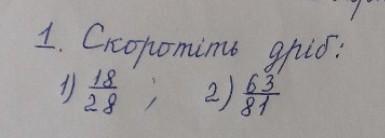 1. Скоротіть дріб:
1) 18/28 ; 2) 63/81